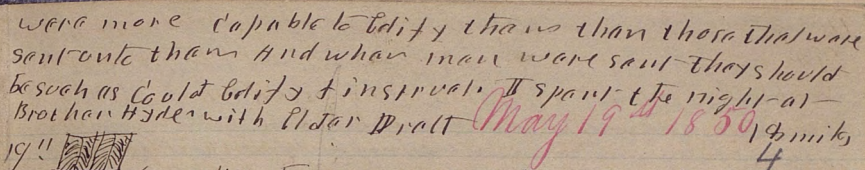 were more capable to Edify them than those that were
sent unto them And when men were sent they should
be such as Could Edify & instruct. I spent the night at
Brother Hyder with Elder Pratt May 19th 1850 18 mils
19!! 4